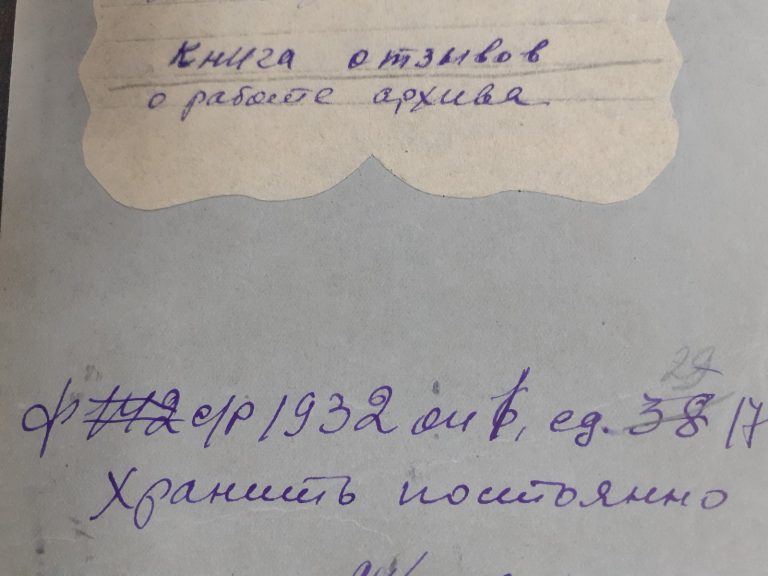 Книга отзывов
о работе архива
29
ф 1112 с/р 1932 оп 1, ед. 38 17
Хранить постоянно